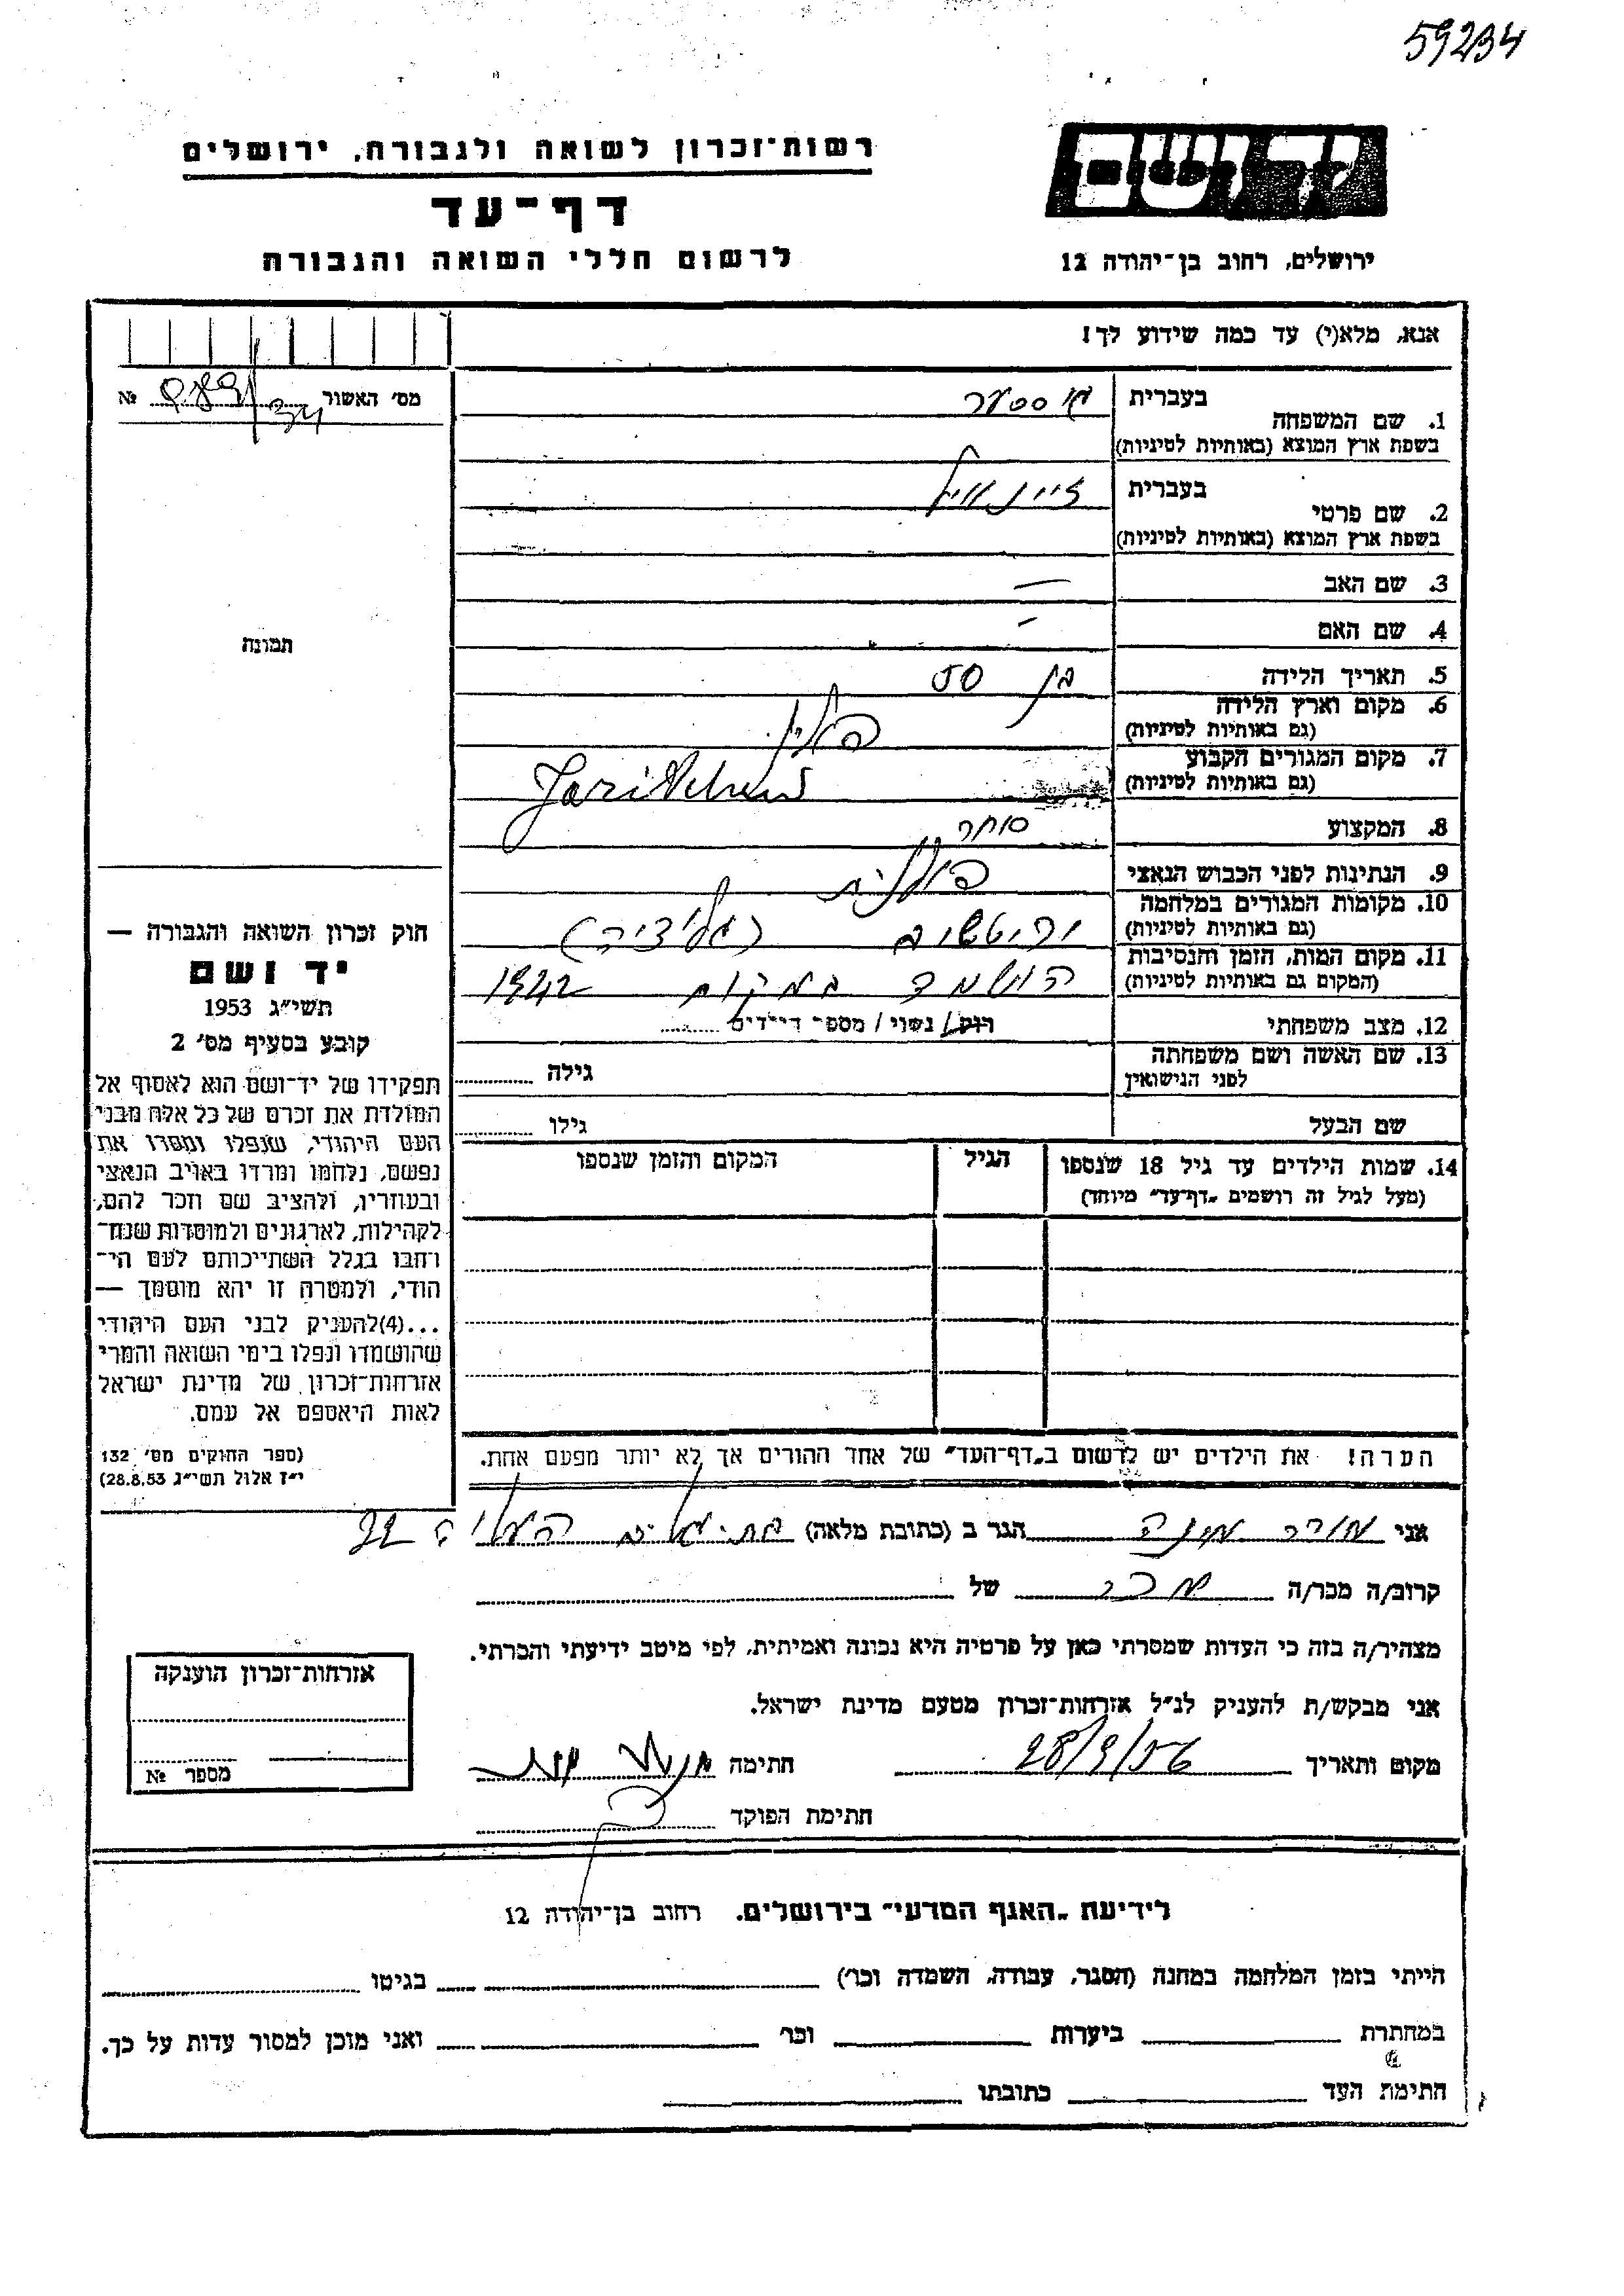 59234
רשות־זכרון לשואה ולגבורה, ירושלים
יד ושם
דף־עד
לרשום חללי השואה והגבורה
ירושלים, רחוב בן־יהודה 12
אנא, מלא(י) עד כמה שידוע לך!
מס׳ האשור № 34
בעברית
1. שם המשפחה
בשפת ארץ המוצא (באותיות לטיניות)
בעברית
2. שם פרטי
בשפת ארץ המוצא (באותיות לטיניות)
3. שם האב —
4. שם האם –
תמונה
5. תאריך הלידה בן 50
6. מקום וארץ הלידה פולין
(גם באותיות לטיניות)
7. מקום המגורים הקבוע
(גם באותיות לטיניות)
8. המקצוע סוחר
9. הנתינות לפני הכבוש הנאצי פולנית
10. מקומות המגורים במלחמה
(גם באותיות לטיניות) (גליציה)
11. מקום המות, הזמן והנסיבות
(המקום גם באותיות לטיניות) הושמד במקום 1942
12. מצב משפחתי רוק / נשוי / מספר הילדים
13. שם האשה ושם משפחתה
לפני הנישואין גילה
שם הבעל גילו
14. שמות הילדים עד גיל 18 שנספו הגיל המקום והזמן שנספו
(מעל לגיל זה רושמים „דף־עד״ מיוחד)
הערה! את הילדים יש לרשום ב„דף־העד״ של אחד ההורים אך לא יותר מפעם אחת.
חוק זכרון השואה והגבורה —
יד ושם
תשי״ג 1953
קובע בסעיף מס׳ 2
תפקידו של יד־ושם הוא לאסוף אל
המולדת את זכרם של כל אלה מבני
העם היהודי, שנפלו ומסרו את
נפשם, נלחמו ומרדו באויב הנאצי
ובעוזריו, ולהציב שם וזכר להם,
לקהילות, לארגונים ולמוסדות שנח־
רחבו בגלל השתייכותם לעם הי־
הודי, ולמטרה זו יהא מוסמך —
...(4)להעניק לבני העם היהודי
שהושמדו ונפלו בימי השואה והמרי
אזרחות־זכרון של מדינת ישראל
לאות היאספם אל עמם.
(ספר החוקים מס׳ 132
י״ז אלול תשי״ג 28.8.53)
אני הגר ב (כתובת מלאה)
קרוב/ה מכר/ה מכר של
מצהיר/ה בזה כי העדות שמסרתי כאן על פרטיה היא נכונה ואמיתית, לפי מיטב ידיעתי והכרתי.
אני מבקש/ת להעניק לנ״ל אזרחות־זכרון מטעם מדינת ישראל.
מקום ותאריך 28/9/56 חתימה
חתימת הפוקד
אזרחות־זכרון הוענקה
מספר №
לידיעת „האגף המדעי״ בירושלים. רחוב בן־יהודה 12
הייתי בזמן המלחמה במחנה (הסגר, עבודה, השמדה וכר׳) בגיטו
במחתרת ביערות וכר׳ ואני מוכן למסור עדות על כך.
חתימת העד כתובתו